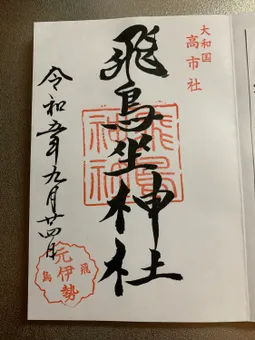 大和国
高市社
飛鳥坐神社
飛鳥
神社
令和五年九月廿四日
飛鳥
元伊勢